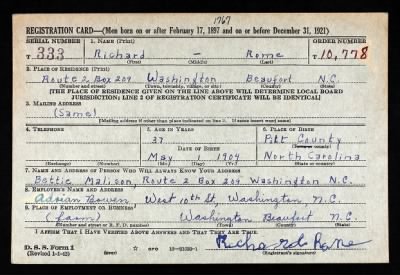 1767
REGISTRATION CARD—(Men born on or after February 17, 1897 and on or before December 31, 1921)
SERIAL NUMBER 1. NAME (Print) ORDER NUMBER
T 333 Richard — Rome T 10,778
(First) (Middle) (Last)
2. PLACE OF RESIDENCE (Print)
Route 2 Box 209 Washington Beaufort N.C.
(Number and street) (Town, township, village, or city) (County) (State)
[THE PLACE OF RESIDENCE GIVEN ON THE LINE ABOVE WILL DETERMINE LOCAL BOARD
JURISDICTION; LINE 2 OF REGISTRATION CERTIFICATE WILL BE IDENTICAL]
3. MAILING ADDRESS
(Same)
[Mailing address if other than place indicated on line 2. If same insert word same]
4. TELEPHONE 5. AGE IN YEARS 6. PLACE OF BIRTH
37 Pitt County
DATE OF BIRTH (Town or county)
May 1 1904 North Carolina
(Exchange) (Number) (Mo.) (Day) (Yr.) (State or country)
7. NAME AND ADDRESS OF PERSON WHO WILL ALWAYS KNOW YOUR ADDRESS
Bettie Malison, Route 2 Box 209 Washington N.C.
8. EMPLOYER'S NAME AND ADDRESS
Adrian Bowen West 10th St, Washington, N.C.
9. PLACE OF EMPLOYMENT OR BUSINESS
(farm) Washington Beaufort N.C.
(Number and street or R. F. D. number) (Town) (County) (State)
I AFFIRM THAT I HAVE VERIFIED ABOVE ANSWERS AND THAT THEY ARE TRUE.
D. S. S. Form 1
(Revised 1-1-42) GPO 16—21630-1 Richard Rome
(Registrant's signature)